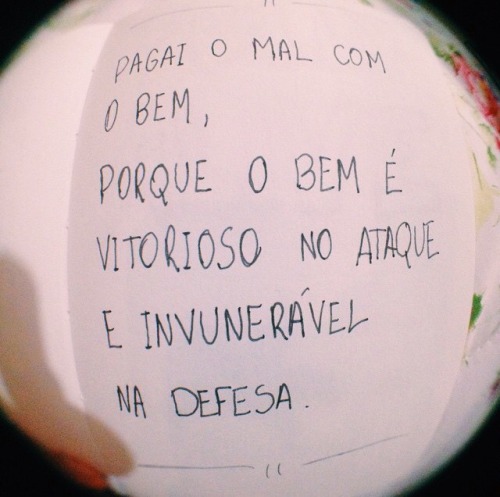 PAGAI O MAL COM
O BEM,
PORQUE O BEM É
VITORIOSO NO ATAQUE
E INVUNERÁVEL
NA DEFESA.